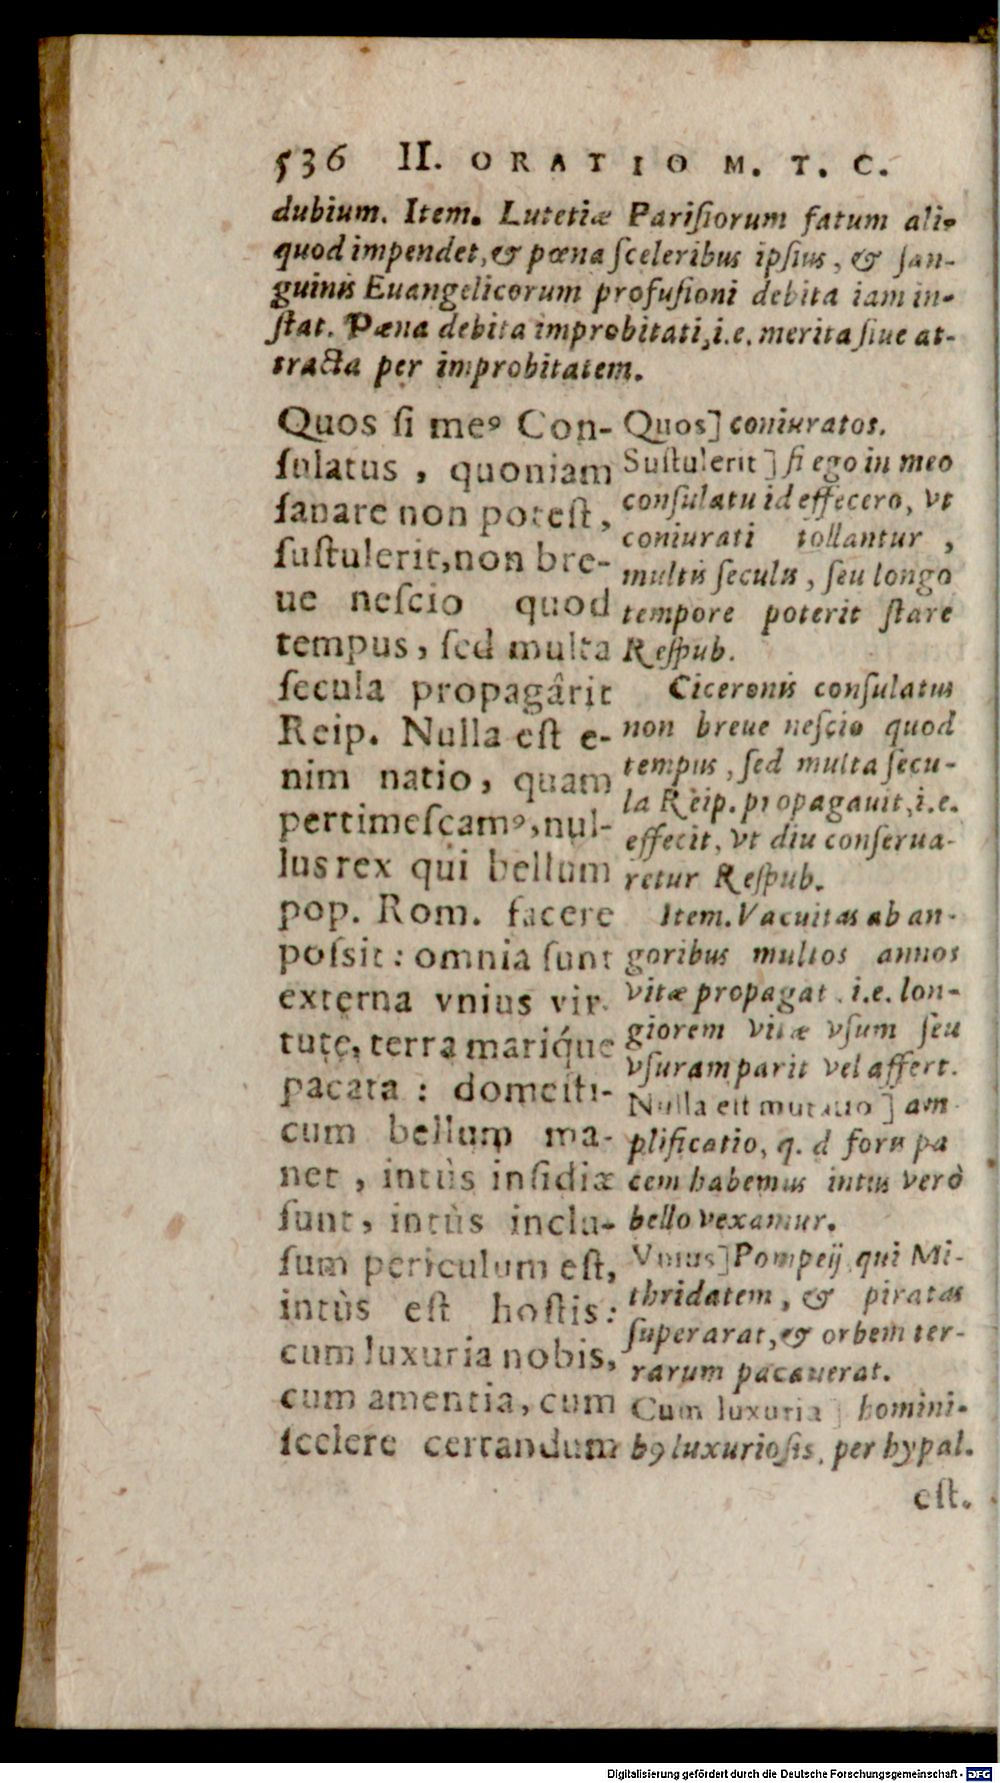 536 II. ORATIO M. T. C.
dubium. Item. Lutetiæ Pariſiorum fatum ali-
quod impendet, & pœna ſceleribus ipſius, & ſan-
guinis Euangelicorum profuſioni debita iam in-
ſtat. Pœna debita improbitati, i.e. merita ſiue at-
tracta per improbitatem.
Quos ſi meꝰ Con-
ſulatus, quoniam
ſanare non poteſt,
ſuſtulerit, non bre-
ue neſcio quod
tempus, ſed multa
ſecula propagârit
Reip. Nulla eſt e-
nim natio, quam
pertimeſcamꝰ, nul-
lus rex qui bellum
pop. Rom. facere
poſsit: omnia ſunt
externa vnius vir-
tute, terra mariq́ue
pacata: domeſti-
cum bellum ma-
net, intùs inſidiæ
ſunt, intùs inclu-
ſum periculum eſt,
intùs eſt hoſtis:
cum luxuria nobis,
cum amentia, cum
ſcelere certandum
Quos] coniuratos.
Suſtulerit] ſi ego in meo
conſulatu id effecero, vt
coniurati tollantur,
multis ſeculis, ſeu longo
tempore poterit ſtare
Reſpub.
Ciceronis conſulatus
non breue neſcio quod
tempus, ſed multa ſecu-
la Reip. propagauit, i.e.
effecit, vt diu conſerua-
retur Reſpub.
Item. Vacuitas ab an-
goribus multos annos
vitæ propagat. i.e. lon-
giorem vitæ vſum ſeu
vſuram parit vel affert.
Nulla eſt mutatio] am-
plificatio, q. d foris pa
cem habemus intus verò
bello vexamur.
Vnius] Pompeij qui Mi-
thridatem, & piratas
ſuperarat, & orbem ter-
rarum pacauerat.
Cum luxuria] homini-
bꝰ luxurioſis, per hypal.
eſt.
Digitalisierung gefördert durch die Deutsche Forschungsgemeinschaft - DFG